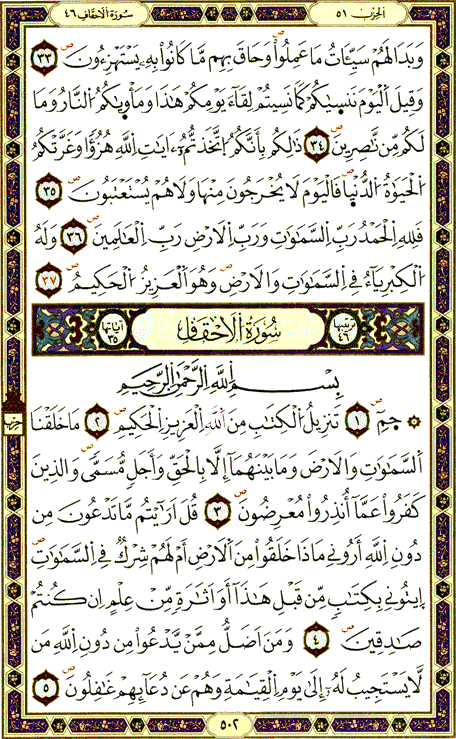 سُورَةُ الْاَحْقَافِ ٤٦
الحِزْبُ ٥١
وَبَدَا لَهُمْ سَيِّـَٔاتُ مَا عَمِلُواْ وَحَاقَ بِهِم مَّا كَانُواْ بِهِۦ يَسْتَهْزِءُونَ ٣٣
وَقِيلَ اَلْيَوْمَ نَنسَيٰكُمْ كَمَا نَسِيتُمْ لِقَآءَ يَوْمِكُمْ هَٰذَا وَمَأْوَيٰكُمُ النَّارُ وَمَا
لَكُم مِّن نَّٰصِرِينَ ٣٤ ذَٰلِكُم بِأَنَّكُمُ اتَّخَذتُّمُۥٓ ءَايَٰتِ اِللَّهِ هُزُؤًا وَغَرَّتْكُمُ
الْحَيَوٰةُ الدُّنْيَا فَالْيَوْمَ لَا يُخْرَجُونَ مِنْهَا وَلَا هُمْ يُسْتَعْتَبُونَ ٣٥
فَلِلهِ الْحَمْدُ رَبِّ السَّمَٰوَٰتِ وَرَبِّ الْاَرْضِ رَبِّ الْعَٰلَمِينَ ٣٦ وَلَهُ
الْكِبْرِيَآءُ فِي السَّمَٰوَٰتِ وَالْاَرْضِ وَهُوَ الْعَزِيزُ الْحَكِيمُ ٣٧
تَرْتِيبُهَا ٤٦ سُورَةُ الْاَحْقَافِ اٰيَاتُهَا ٣٥
بِسْمِ اِللَّهِ اِلرَّحْمَٰنِ اِلرَّحِيمِ
حِزْب
حمٓ ١ تَنزِيلُ الْكِتَٰبِ مِنَ اَللَّهِ الْعَزِيزِ الْحَكِيمِ ٢ مَا خَلَقْنَا
السَّمَٰوَٰتِ وَالْاَرْضَ وَمَا بَيْنَهُمَآ إِلَّا بِالْحَقِّ وَأَجَلٍ مُّسَمًّى وَالذِينَ
كَفَرُواْ عَمَّآ أُنذِرُواْ مُعْرِضُونَ ٣ قُلَ اَرَٰٓيْتُم مَّا تَدْعُونَ مِن
دُونِ اِللَّهِ أَرُونِي مَاذَا خَلَقُواْ مِنَ الْاَرْضِ أَمْ لَهُمْ شِرْكٌ فِي السَّمَٰوَٰتِ
اِيتُونِي بِكِتَٰبٍ مِّن قَبْلِ هَٰذَآ أَوَ اَثَٰرَةٍ مِّنْ عِلْمٍ اِن كُنتُمْ
صَٰدِقِينَ ٤ وَمَنَ اَضَلُّ مِمَّنْ يَّدْعُواْ مِن دُونِ اِللَّهِ مَن
لَّا يَسْتَجِيبُ لَهُۥٓ إِلَىٰ يَوْمِ الْقِيَٰمَةِ وَهُمْ عَن دُعَآئِهِمْ غَٰفِلُونَ ٥
٥٠٢